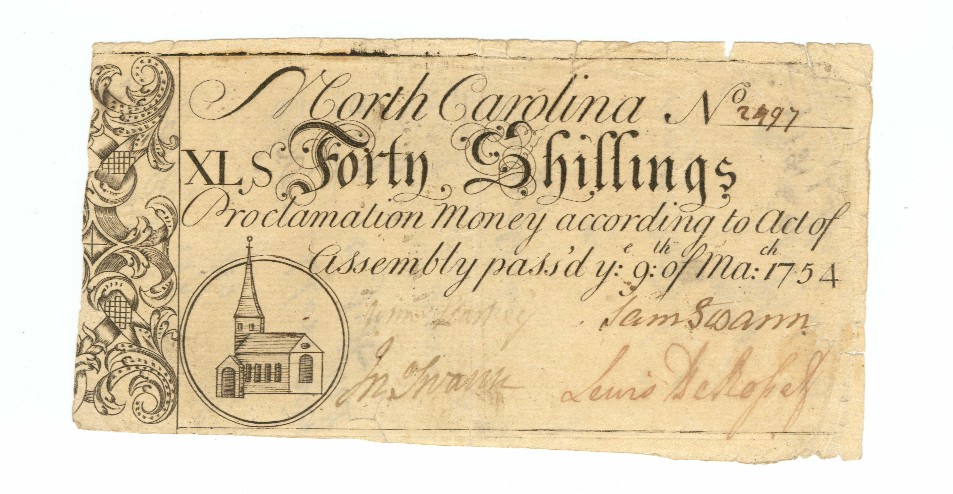 North Carolina No 2497
XL S Forty Shillings
Proclamation Money according to Act of
Assembly pass'd yͤ: 9ͭͪ: of Maͨͪ: 1754
Sam Swann
Jn Swann Lewis DeRosset